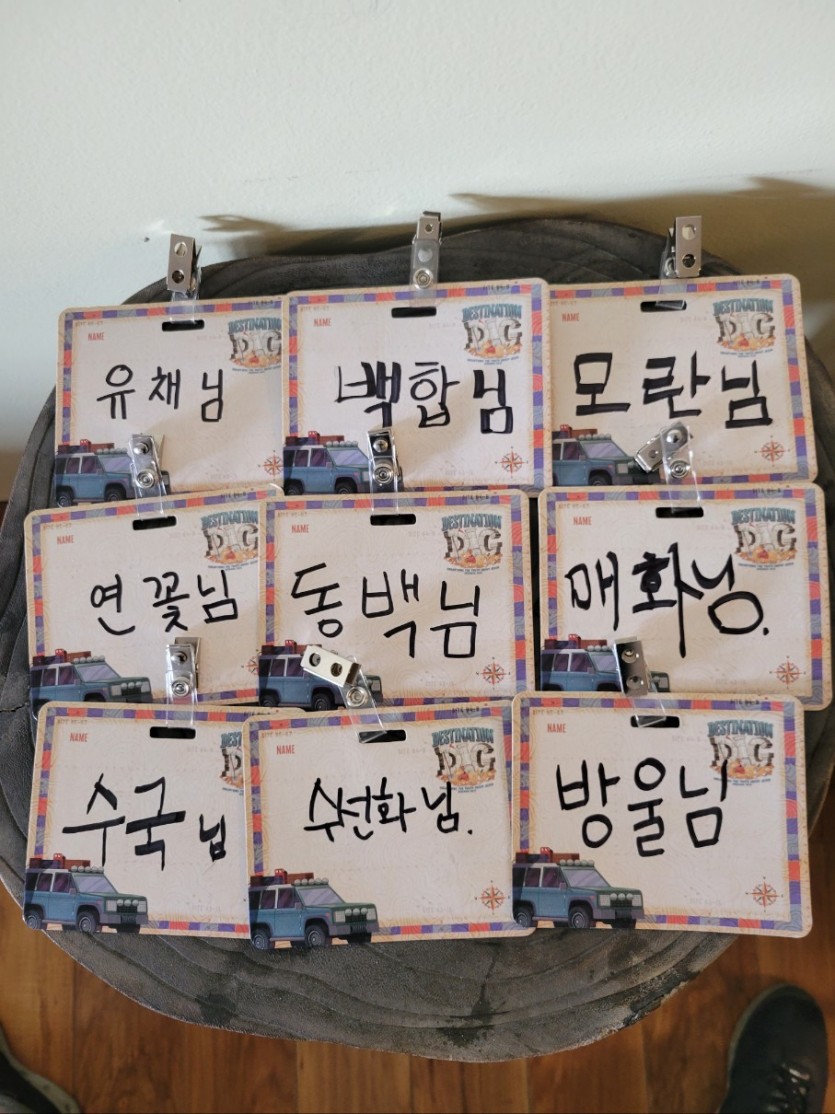 NAME
DESTINATION
DIG
유채님
NAME
DESTINATION
DIG
백합님
NAME
DESTINATION
DIG
모란님
NAME
DESTINATION
DIG
연꽃님
NAME
DESTINATION
DIG
동백님
NAME
DESTINATION
DIG
매화님.
NAME
수국님
NAME
DESTINATION
DIG
수선화님.
NAME
DESTINATION
DIG
방울님